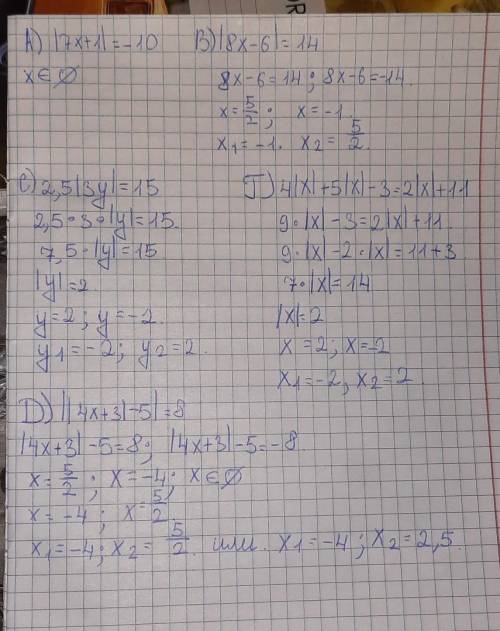 A) |7x+1|=-10
x∈∅
B) |8x-6|=14
8x-6=14; 8x-6=-14.
x=5/2; x=-1.
x1=-1. x2=5/2.
C) 2,5|3y|=15
2,5·3·|y|=15.
7,5·|y|=15
|y|=2
y=2; y=-2.
y1=-2; y2=2.
Г) 4|x|+5|x|-3=2|x|+11
9·|x|-3=2|x|+11.
9·|x|-2·|x|=11+3
7·|x|=14
|x|=2
x=2; x=-2
x1=-2, x2=2.
D) ||4x+3|-5|=8
|4x+3|-5=8; |4x+3|-5=-8.
x=5/2; x=-4; x∈∅
x=-4; x=5/2
x1=-4; x2=5/2. или. x1=-4; x2=2,5.